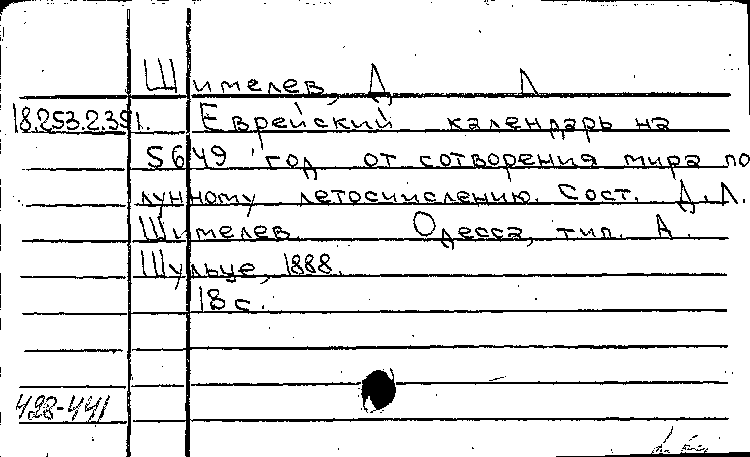 Шимелев, Д Л
18.253.2.391. Еврейский календарь на
5649 год от сотворения мира по
лунному летосчислению. Сост. Д.Л.
Шимелев. Одесса, тип. А.
Шульце, 1888.
18 с.
428-441